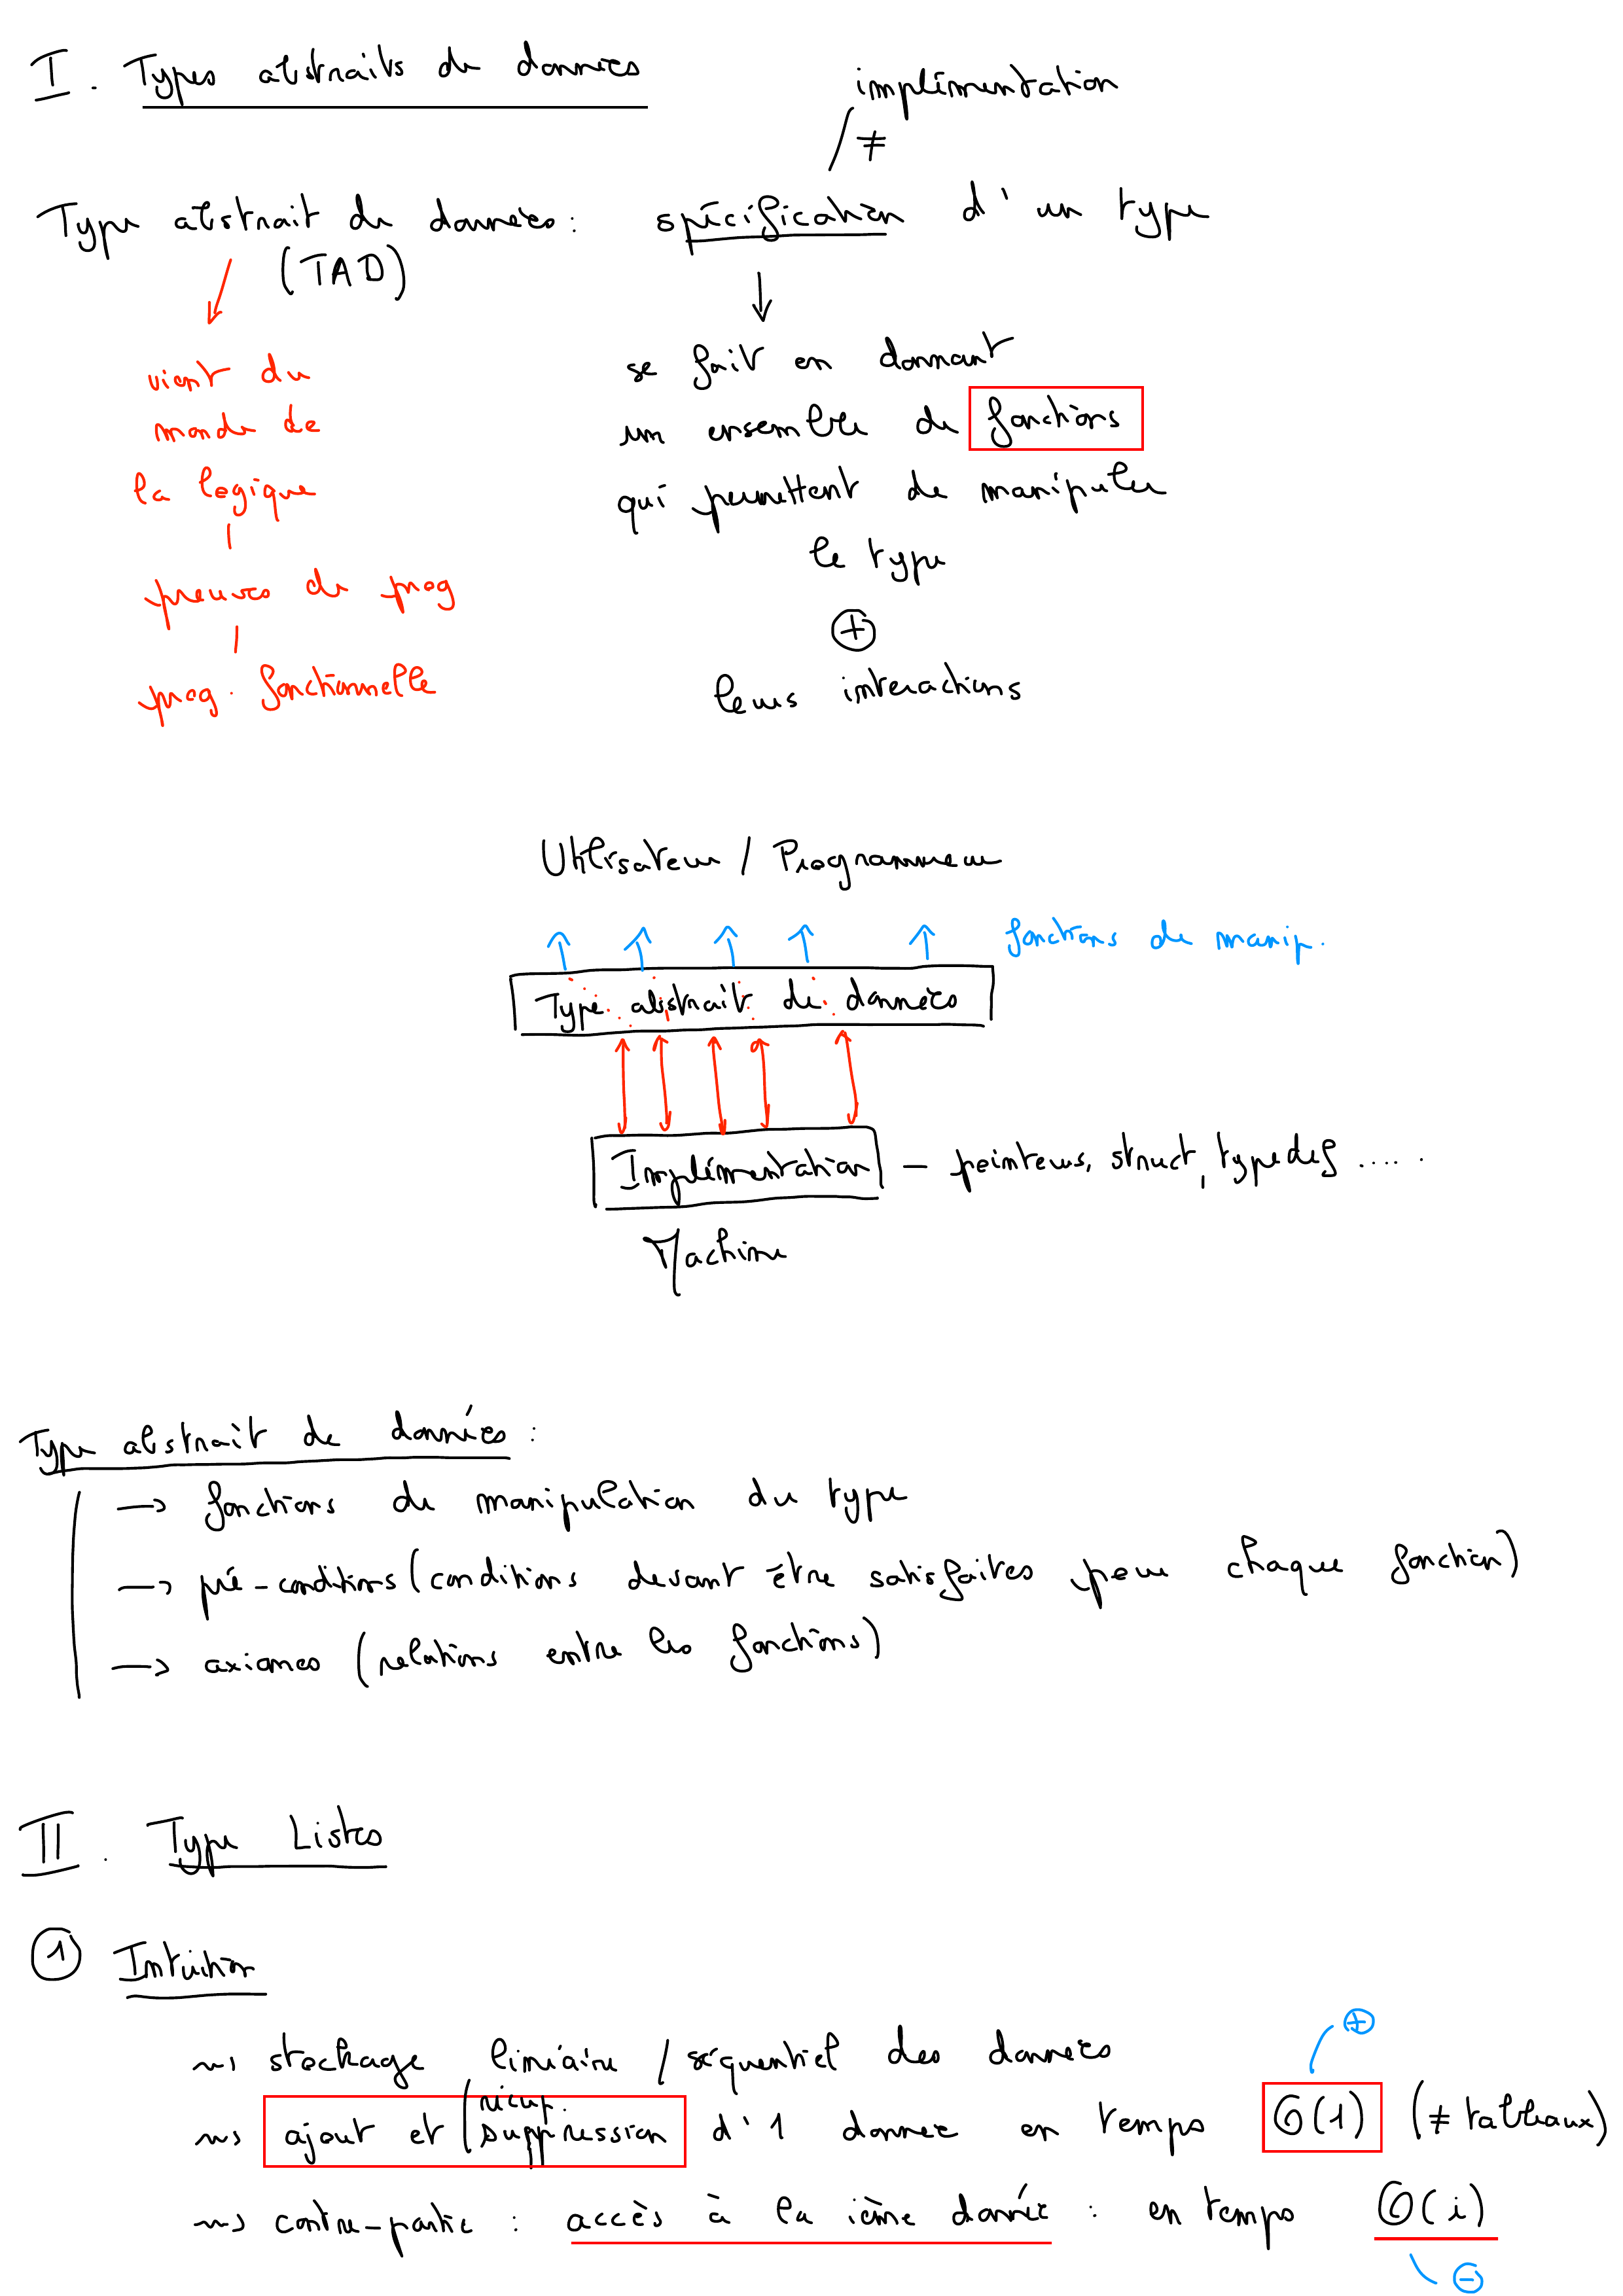 I. Types abstraits de données
implémentation
≠
Type abstrait de données : spécification d'un type
(TAD)
vient du
monde de
la logique
preuves de prog
prog. fonctionnelle
se fait en donnant
un ensemble de fonctions
qui permettent de manipuler
le type
+
leurs interactions
Utilisateur / Programmeur
fonctions de manip.
Type abstrait de données
Implémentation — pointeurs, struct, typedef .....
Machine
Type abstrait de données :
→ fonctions de manipulation du type
→ pré-conditions (conditions devant être satisfaites pour chaque fonction)
→ axiomes (relations entre les fonctions)
II. Type Listes
1 Intuition
+
⇝ stockage linéaire / séquentiel des données
⇝ ajout et (récup. suppression d'1 donnée en temps O(1) (≠ tableaux)
⇝ contre-partie : accès à la ième donnée : en temps O(i)
-